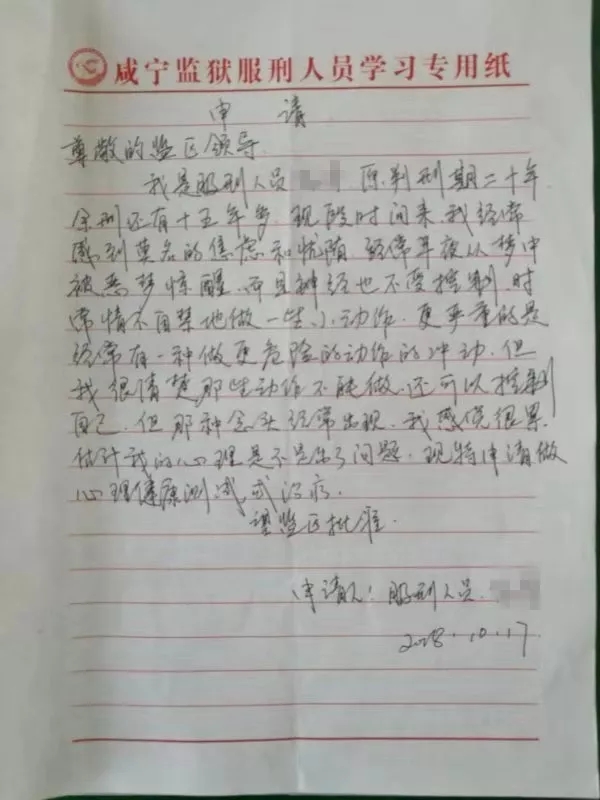 咸宁监狱服刑人员学习专用纸
申 请
尊敬的监区领导
我是服刑人员 原判刑期二十年
余刑还有十五年多,现段时间来我经常
感到莫名的焦虑和忧随,经常半夜从梦中
被恶梦惊醒,而且神经也不受控制,时
常情不自禁地做一些小动作,更严重的是
经常有一种做更危险的动作的冲动,但
我很清楚那些动作不能做,还可以控制
自己,但那种念头经常出现,我感觉很累
估计我的心理是不是出了问题,现特申请做
心理健康测试或治疗.
望监区批准.
申请人:服刑人员.
2018.10.17